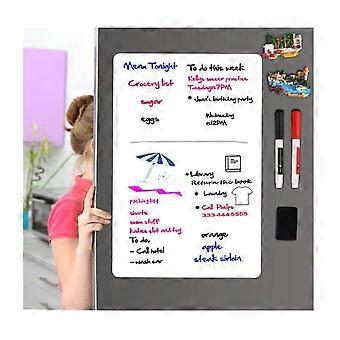 Menu Tonight
Grocery list
sugar
eggs
To do this week
Kellys soccer practice
Tuesday @ 7PM
• Jane's birthday party
Wednesday
@12PM
packing list
shorts
swim stuff
To do:
- Call hotel
- wash car
• Library
Return the book
• Laundry
• Call Phelps
333-444-5555
orange
apple
steak sirloin